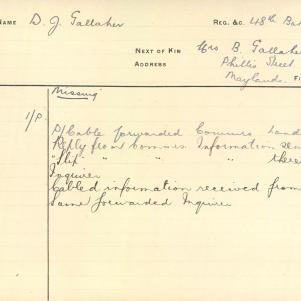 NAME D. J. Gallaher REG. &C. 48th Bat
NEXT OF KIN Mrs B. Gallaher
ADDRESS Phillis Street
Maylands.
Missing
Cable forwarded Commrs Lond
Reply from Commrs Information sen
"Slip" " " " there
Inquirer
Cabled information received from
Same forwarded Inquirer